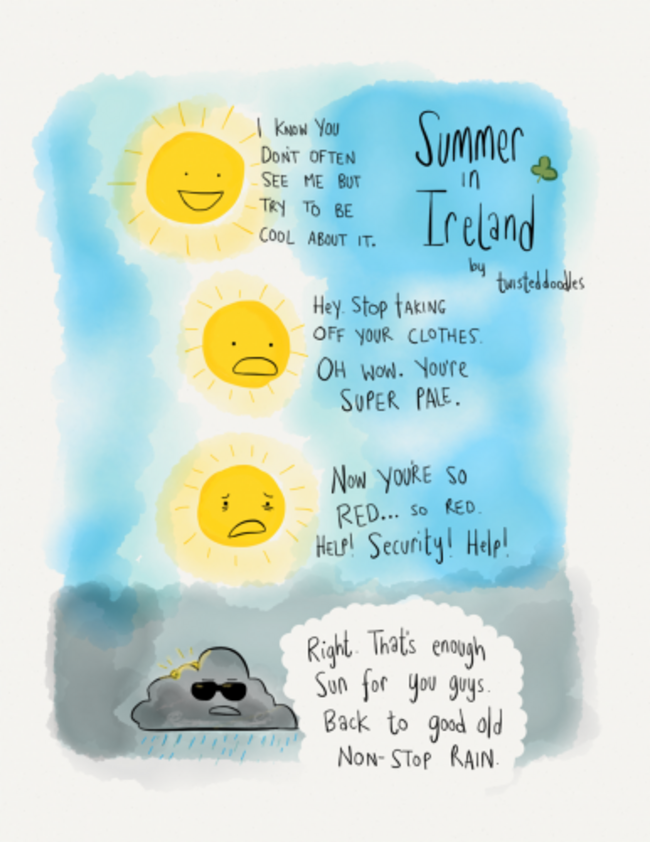 Summer
in
Ireland
by
twisteddoodles
I KNOW YOU
DON'T OFTEN
SEE ME BUT
TRY TO BE
COOL ABOUT IT.
Hey. Stop TAKING
OFF YOUR CLOTHES.
OH WOW. You're
SUPER PALE.
NOW YOU'RE SO
RED... SO RED.
HELP! Security! Help!
Right. That's enough
Sun for you guys.
Back to good old
NON-STOP RAIN.